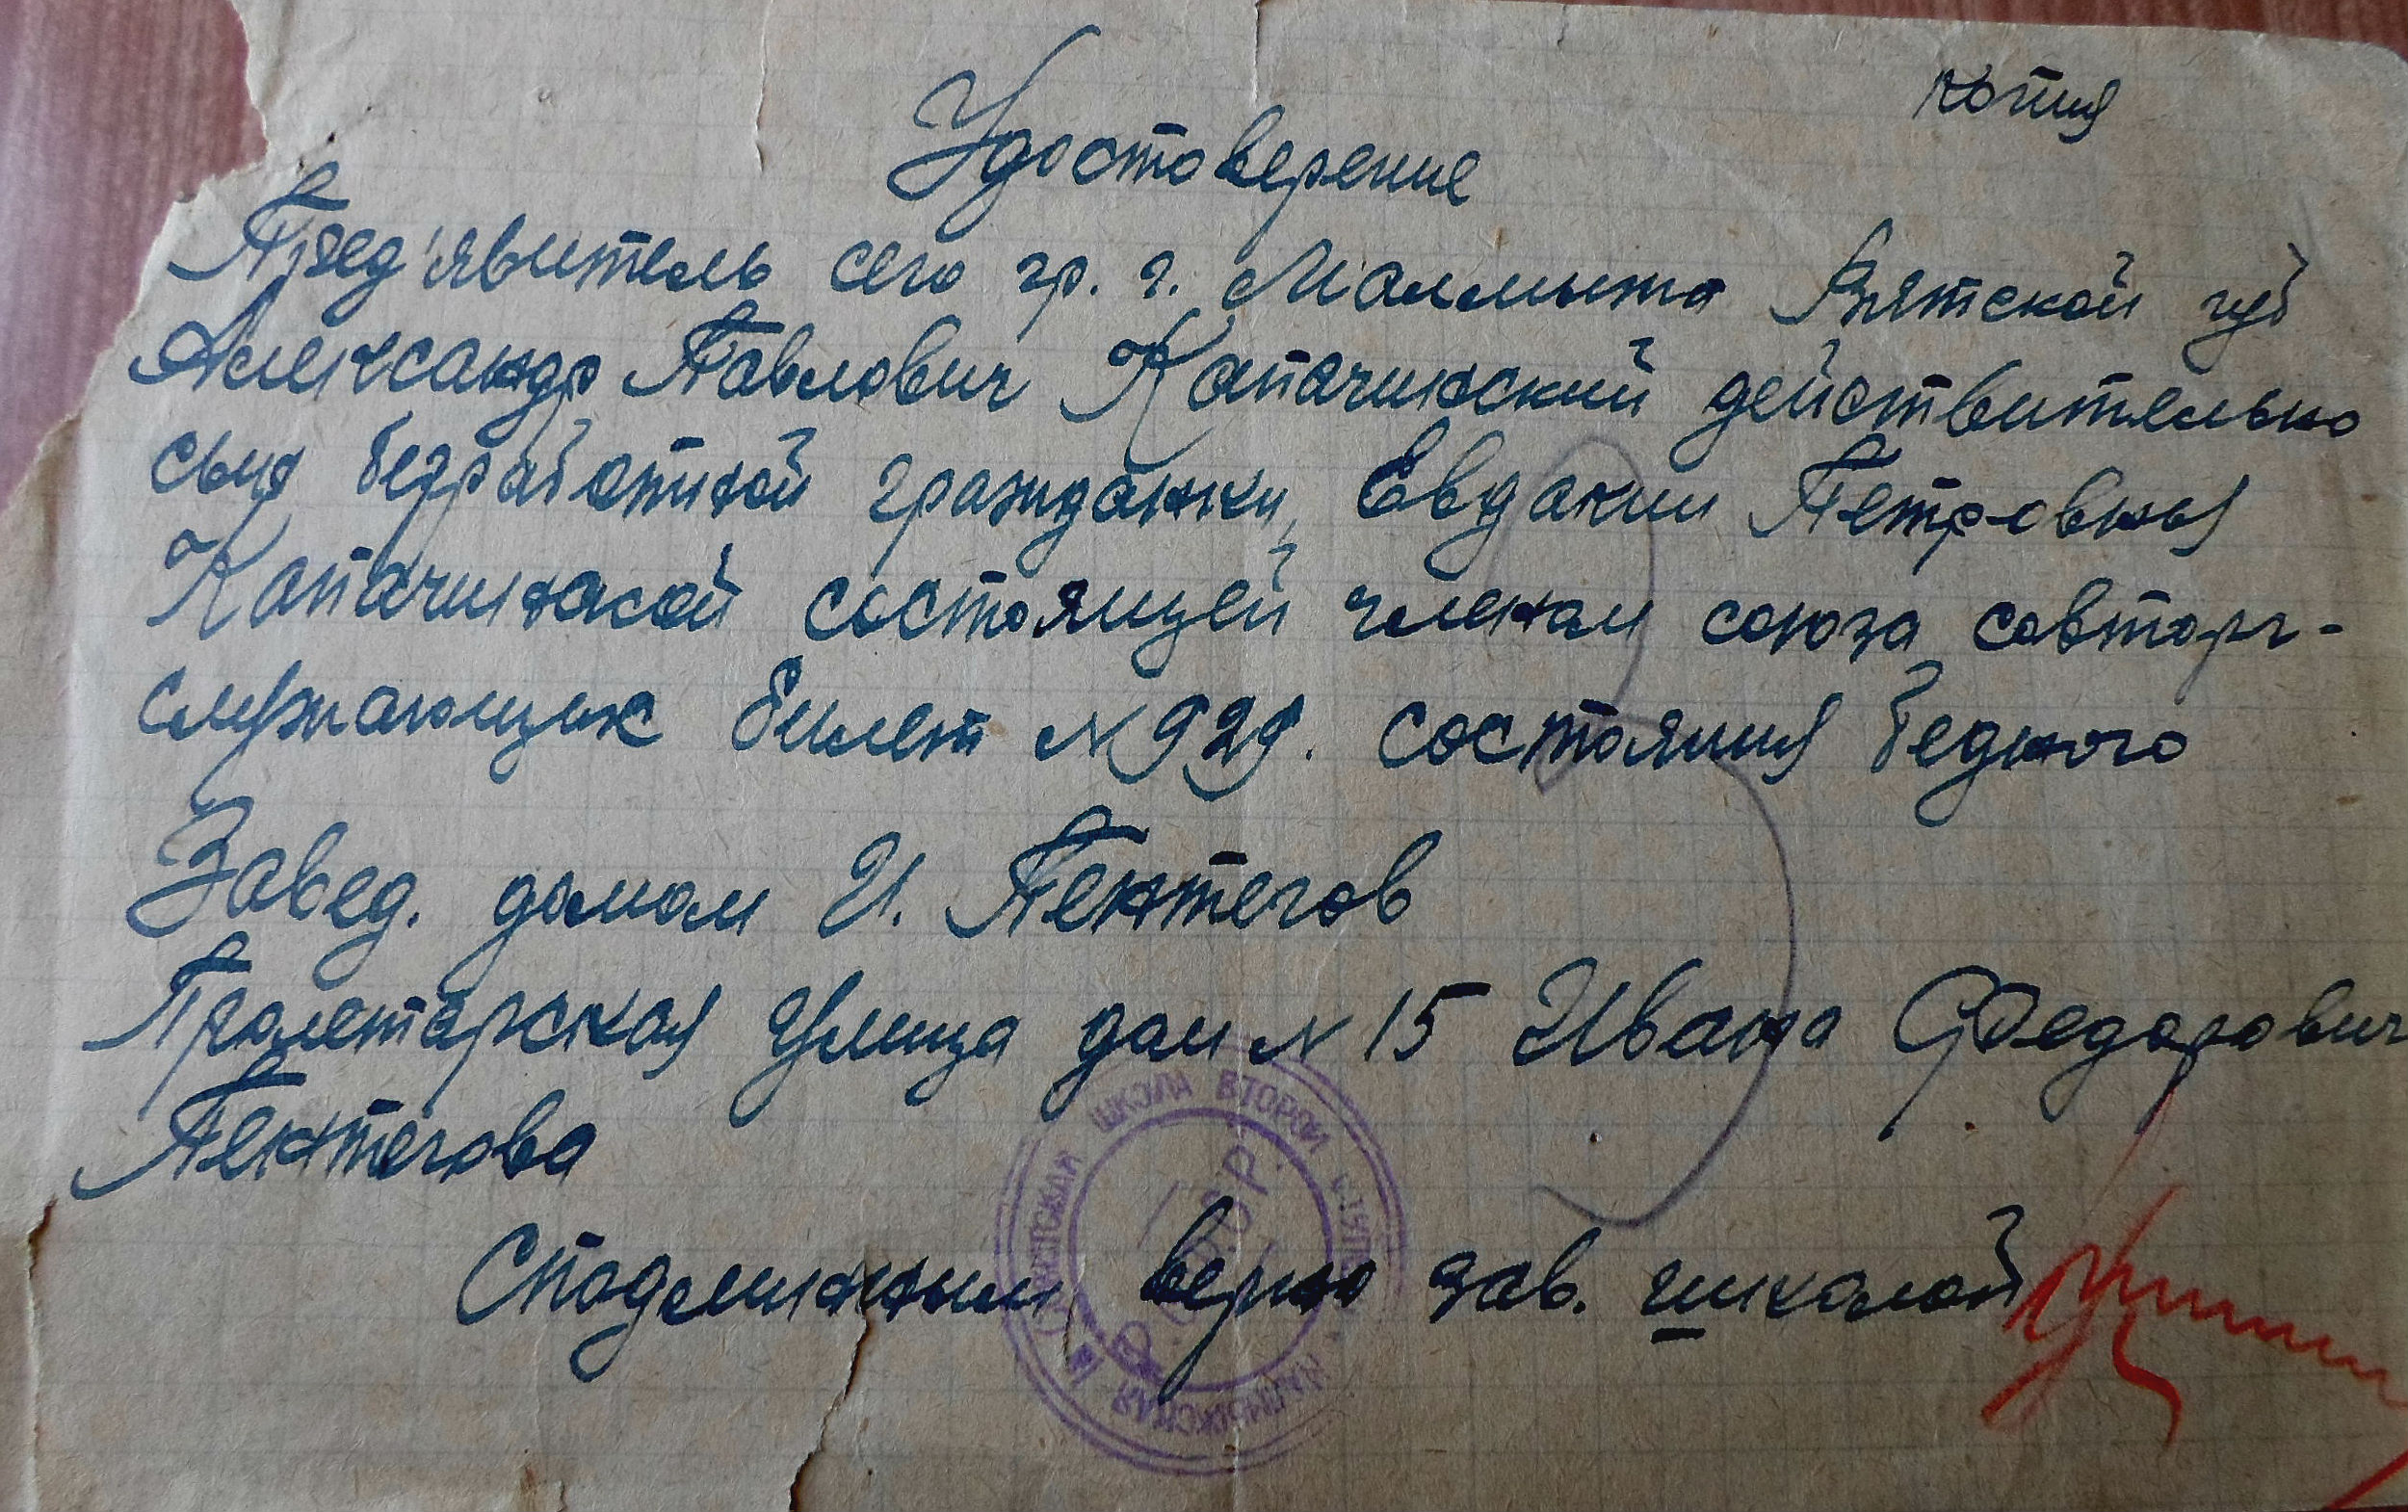 копия
Удостоверение
Пред'явитель сего гр. г. Малмыжа Вятской губ
Александр Павлович Капачинский действительно
сын безработной гражданки, Евдакии Петровны
Капачинской состоящей членом союза совторг-
служащих билет №929. состояния бедного
Завед. домом И. Пентегов
Пролетарская улица дом № 15 Ивана Федорович
Пентегова
Сподлинным верно зав. школой
МАЛМЫЖСКАЯ СОВЕТСКАЯ ШКОЛА ВТОРОЙ СТУПЕНИ
Р.С.Ф.С.Р.